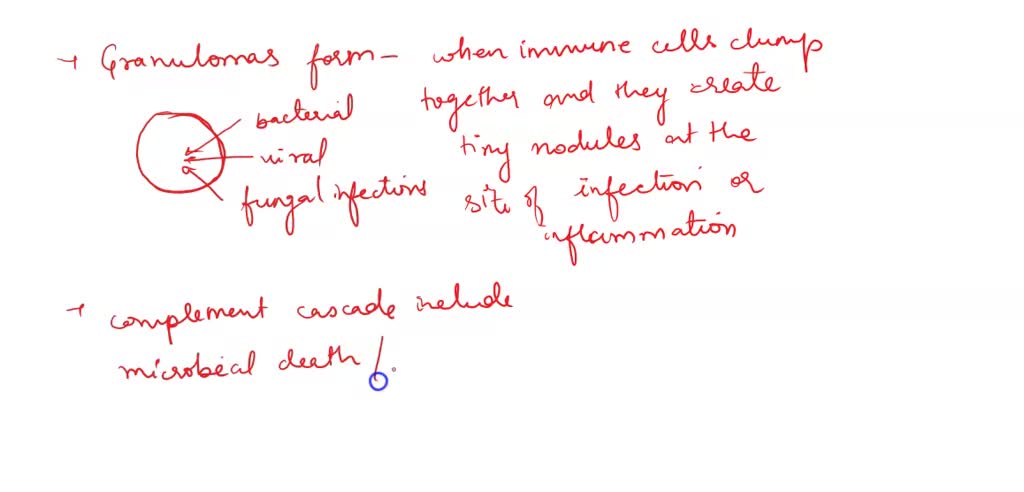 → Granulomas form – when immune cells clump
together and they create
tiny nodules at the
site of infection or
inflammation
bacterial
viral
fungal infections
→ complement cascade include
microbial death /.